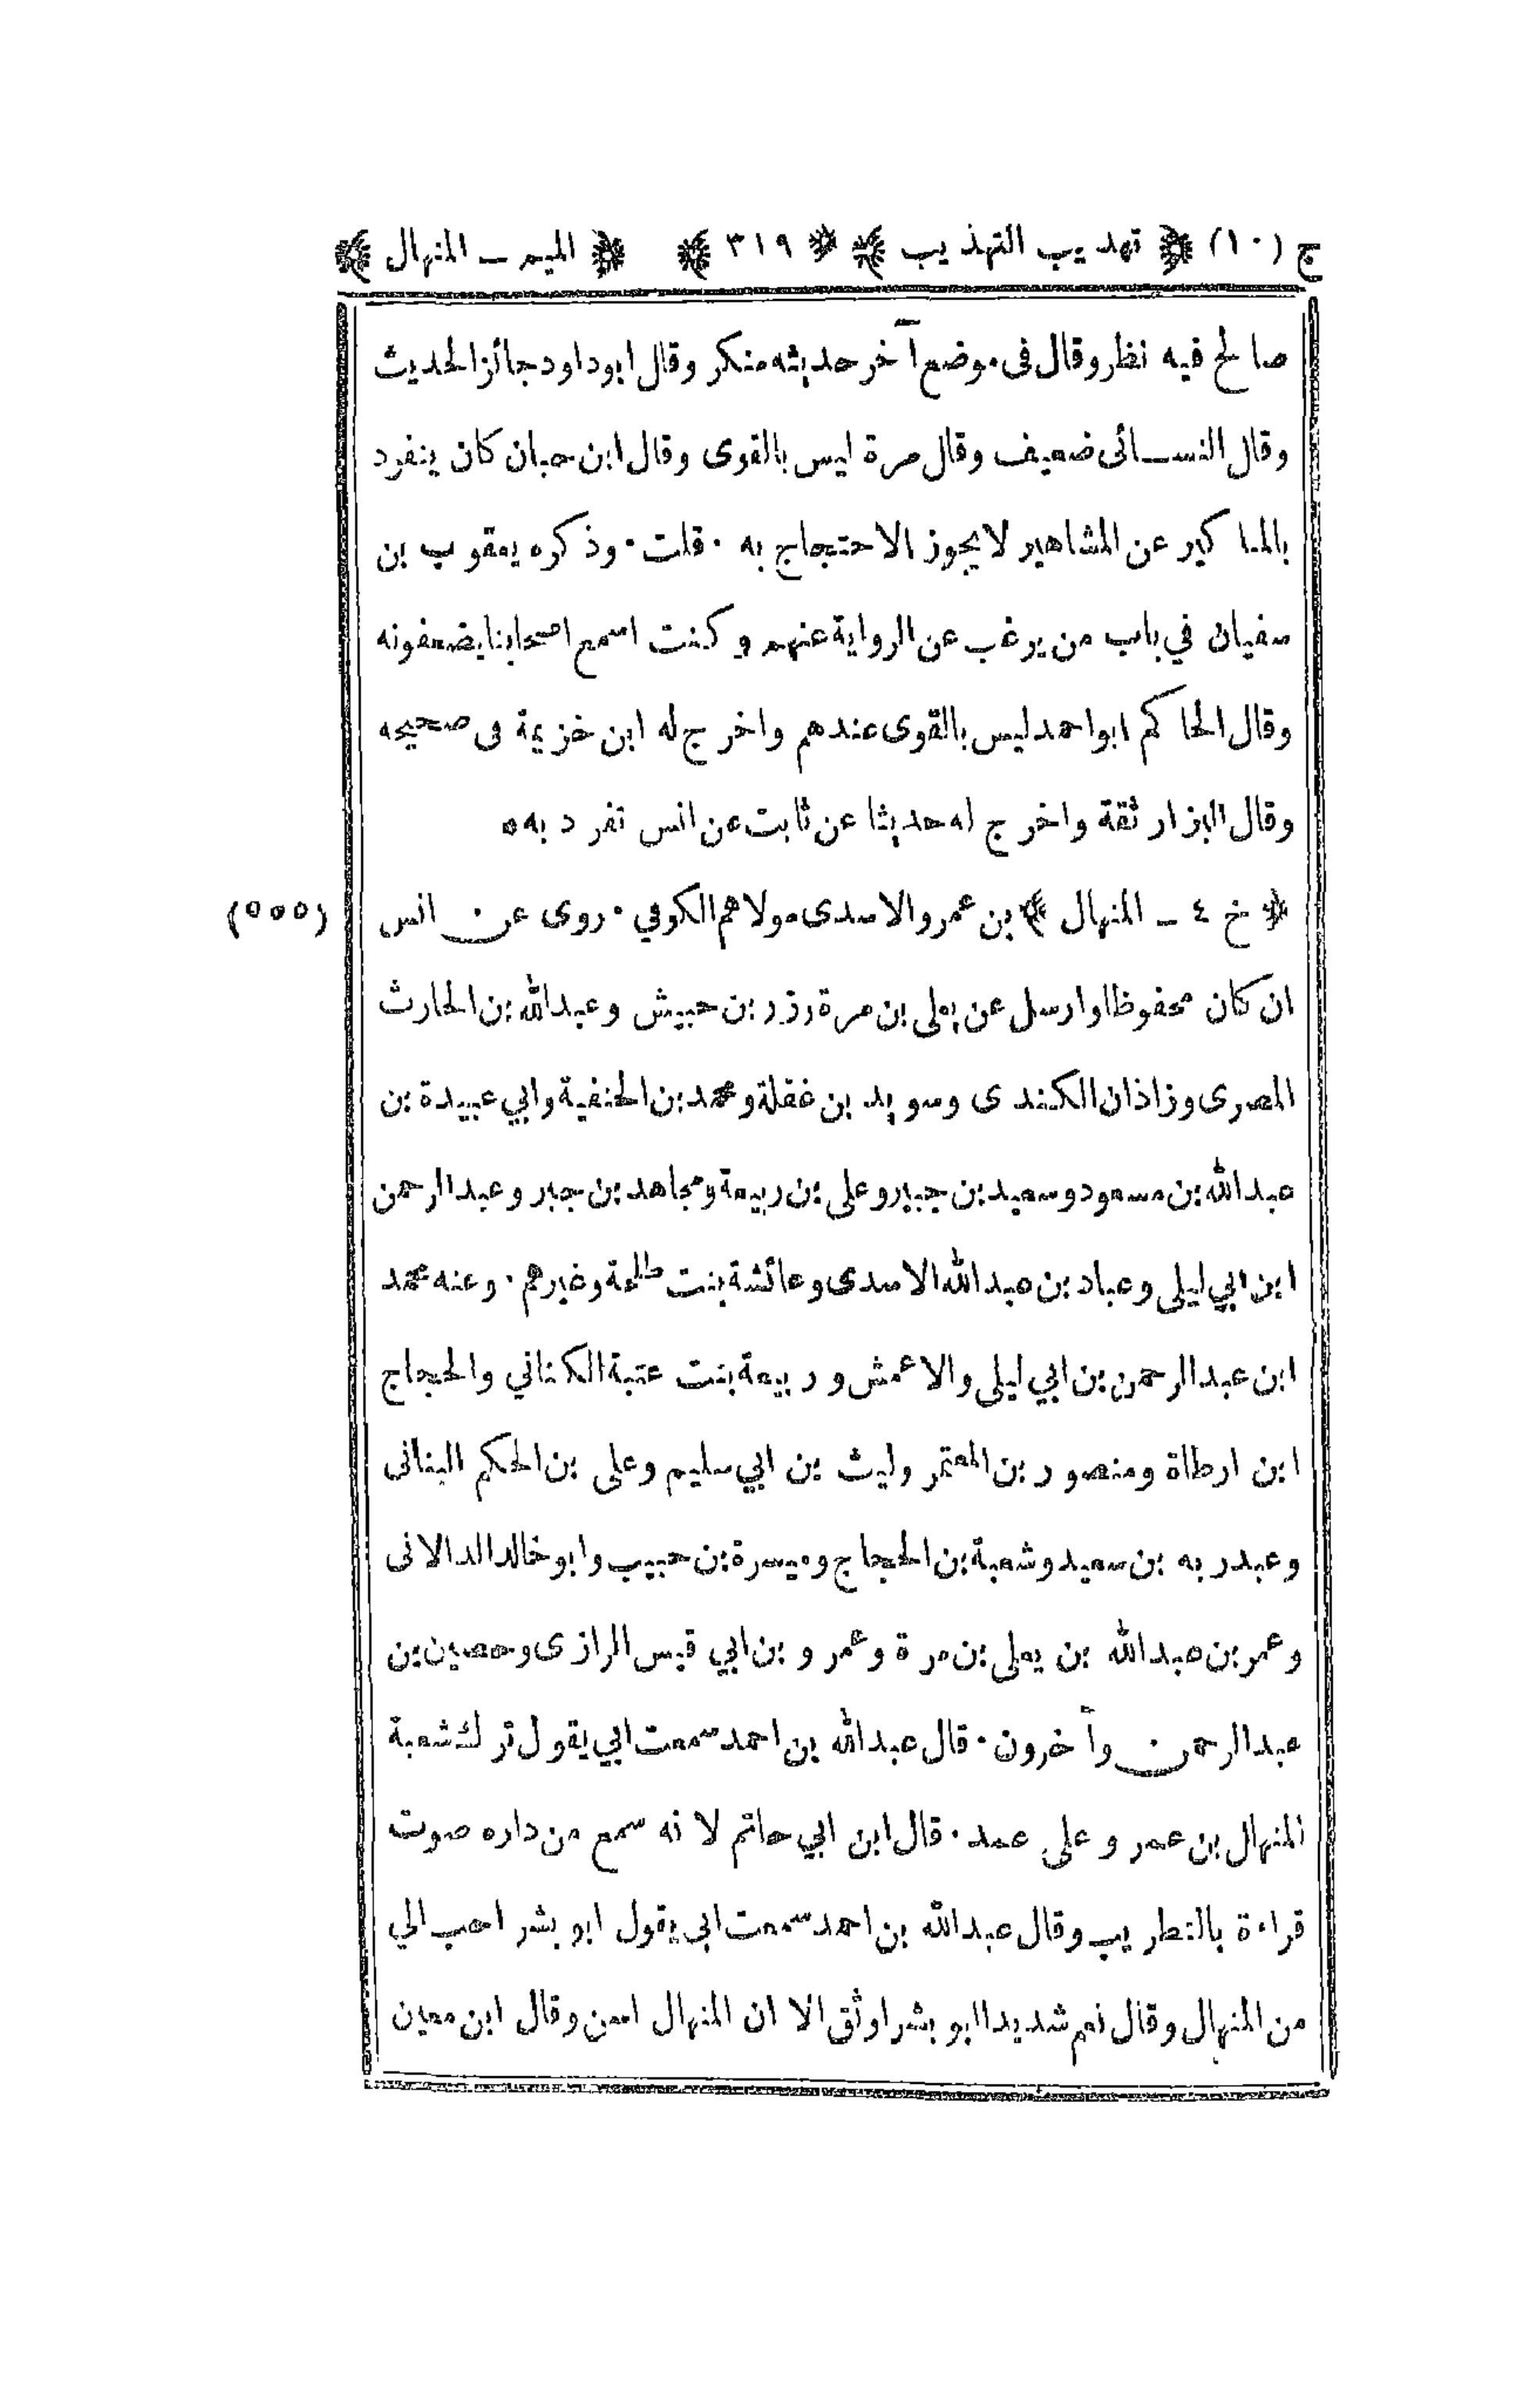 ج (١٠) ﴿ تهذيب التهذيب ﴾ * ٣١٩ ﴾ ﴿ الميم ــ المنهال ﴾
صالح فيه نظر وقال فى موضع آخر حديثه منكر وقال ابوداود جائز الحديث
وقال النســائى ضعيف وقال مرة ليس بالقوى وقال ابن حبان كان ينفرد
بالمناكير عن المشاهير لا يجوز الاحتجاج به ٠ قلت ٠ وذكره يعقوب بن
سفيان في باب من يرغب عن الرواية عنهم وكنت اسمع اصحابنا يضعفونه
وقال الحاكم ابو احمد ليس بالقوى عندهم واخرج له ابن خزيمة فى صحيحه
وقال البزار ثقة واخرج له حديثا عن ثابت عن انس تفرد به ٥
﴿ خ ٤ ــ المنهال ﴾ بن عمرو الاسدى مولاهم الكوفي ٠ روى عن انس (٥٥٥)
ان كان محفوظا وارسل عن يعلى بن مرة وزر بن حبيش وعبدالله بن الحارث
المصرى وزاذان الكندى وسويد بن غفلة ومحمد بن الحنفية وابي عبيدة بن
عبدالله بن مسعود وسعيد بن جبير وعلى بن ربيعة ومجاهد بن جبر وعبدالرحمن
ابن ابي ليلى وعباد بن عبدالله الاسدى وعائشة بنت طلحة وغيرهم ٠ وعنه محمد
ابن عبدالرحمن بن ابي ليلى والاعمش وربيعة بنت عتبة الكناني والحجاج
ابن ارطاة ومنصور بن المعتمر وليث بن ابي سليم وعلى بن الحكم البنانى
وعبدربه بن سعيد وشعبة بن الحجاج وميسرة بن حبيب وابو خالد الدالانى
وعمر بن عبدالله بن يعلى بن مرة وعمرو بن ابي قيس الرازى وحصين بن
عبدالرحمن وآخرون ٠ قال عبدالله بن احمد سمعت ابي يقول ترك شعبة
المنهال بن عمرو على عمد ٠ قال ابن ابي حاتم لانه سمع من داره صوت
قراءة بالتطريب وقال عبدالله بن احمد سمعت ابى يقول ابو بشر احب الي
من المنهال وقال نعم شديدا ابو بشر اوثق الا ان المنهال اسن وقال ابن معين